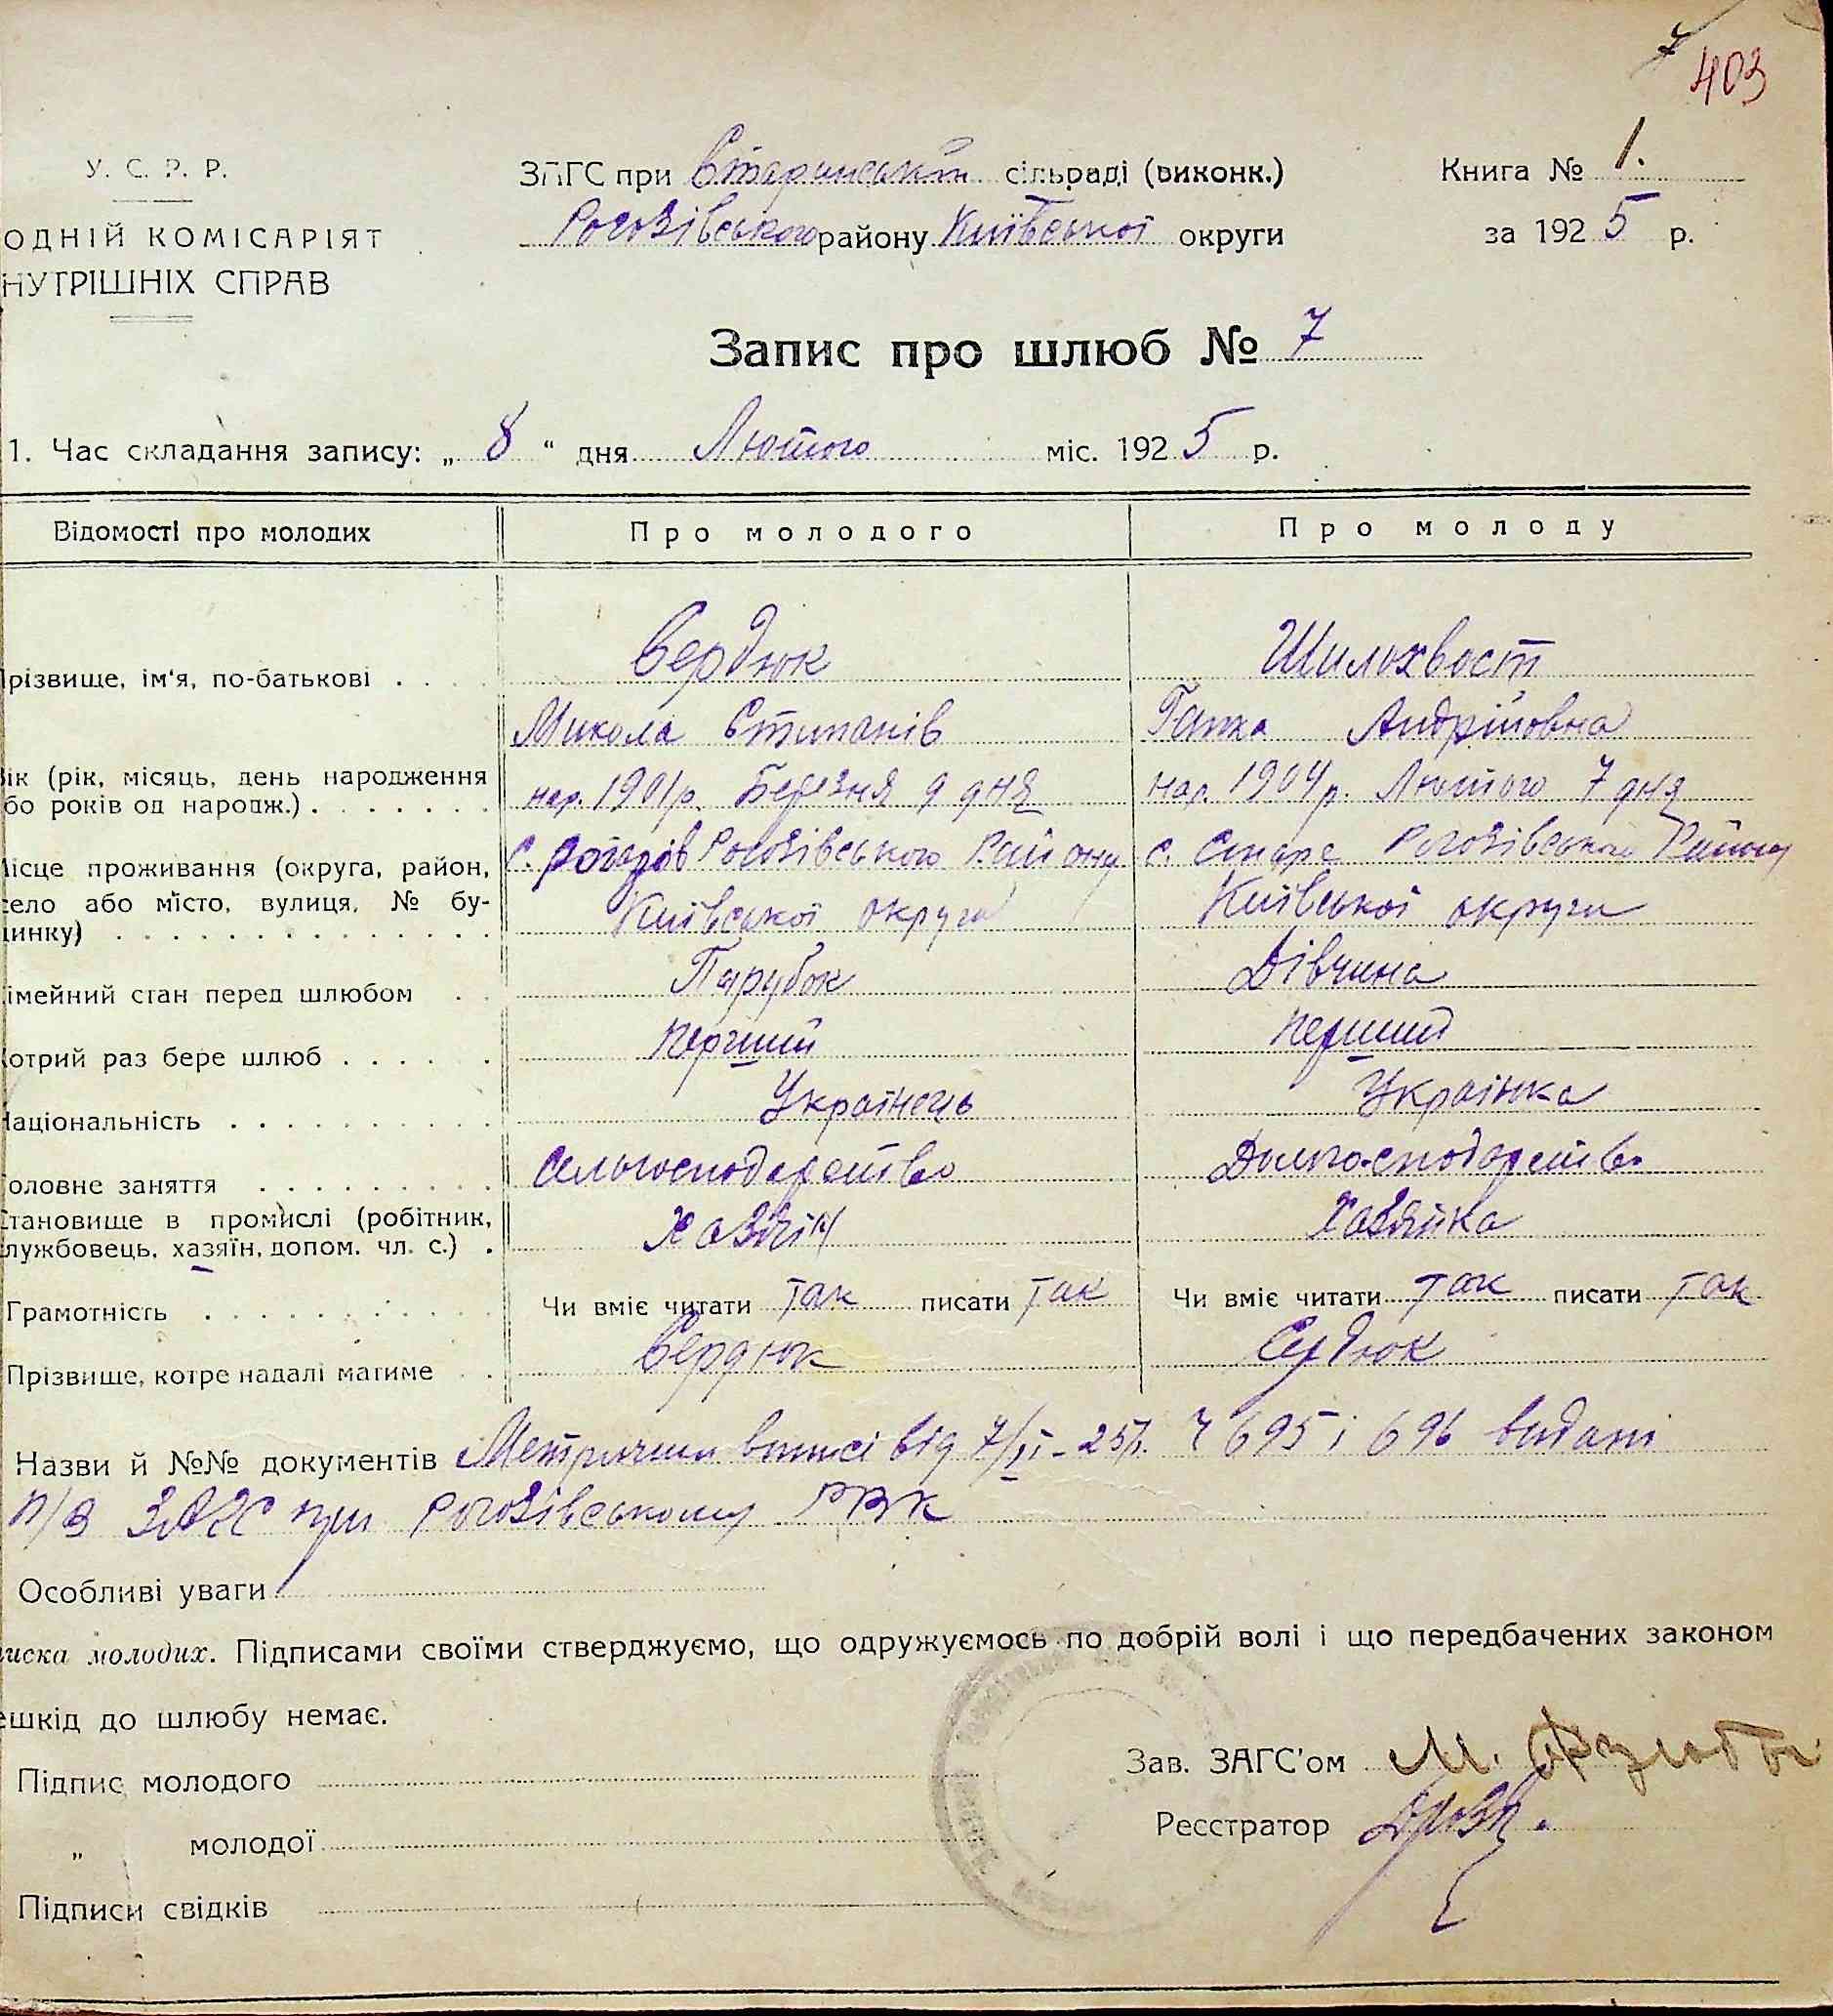 7
403
У. С. Р. Р.
ОДНІЙ КОМІСАРІЯТ
НУТРІШНІХ СПРАВ
ЗАГС при Старинській сільраді (виконк.)
Рогозівського району Київської округи
Книга № 1.
за 1925 р.
Запис про шлюб № 7
1. Час складання запису: „ 8 “ дня Лютого міс. 1925 р.
Відомості про молодих Про молодого Про молоду
різвище, ім'я, по-батькові Сердюк Шилохвост
Микола Стипанів Галка Андрійовна
ік (рік, місяць, день народження
бо років од народж.) нар. 1901р. Березня 9 дня нар. 1904р. Лютого 7 дня
ісце проживання (округа, район, с. Рогозів Рогозівського Району с. Старе Рогозівського Району
село або місто, вулиця, № бу-
инку) Київської округи Київської округи
імейний стан перед шлюбом Парубок Дівчина
отрий раз бере шлюб перший перший
Національність Українець Українка
оловне заняття Сельгосподарство
тановище в промислі (робітник,
лужбовець, хазяїн, допом. чл. с.) Хазяін Хазяйка
Грамотність Чи вміє читати так писати так Чи вміє читати так писати так
Прізвище, котре надалі матиме Сердюк Сердюк
Назви й №№ документів Метричні виписі від 7/II-25р. Ч 695 і 696 видані
п/в ЗАГС при Рогозівському РВК
Особливі уваги
иска молодих. Підписами своїми стверджуємо, що одружуємось по добрій волі і що передбачених законом
ешкід до шлюбу немає.
Підпис молодого
„ молодої
Підписи свідків
Зав. ЗАГС'ом М.
Реєстратор